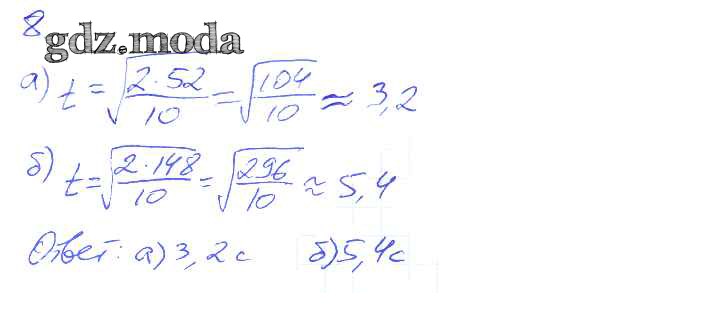 8
gdz.moda
а) t = √(2·52/10) = √(104/10) ≈ 3,2
б) t = √(2·148/10) = √(296/10) ≈ 5,4
Ответ: а) 3,2 с б) 5,4 с